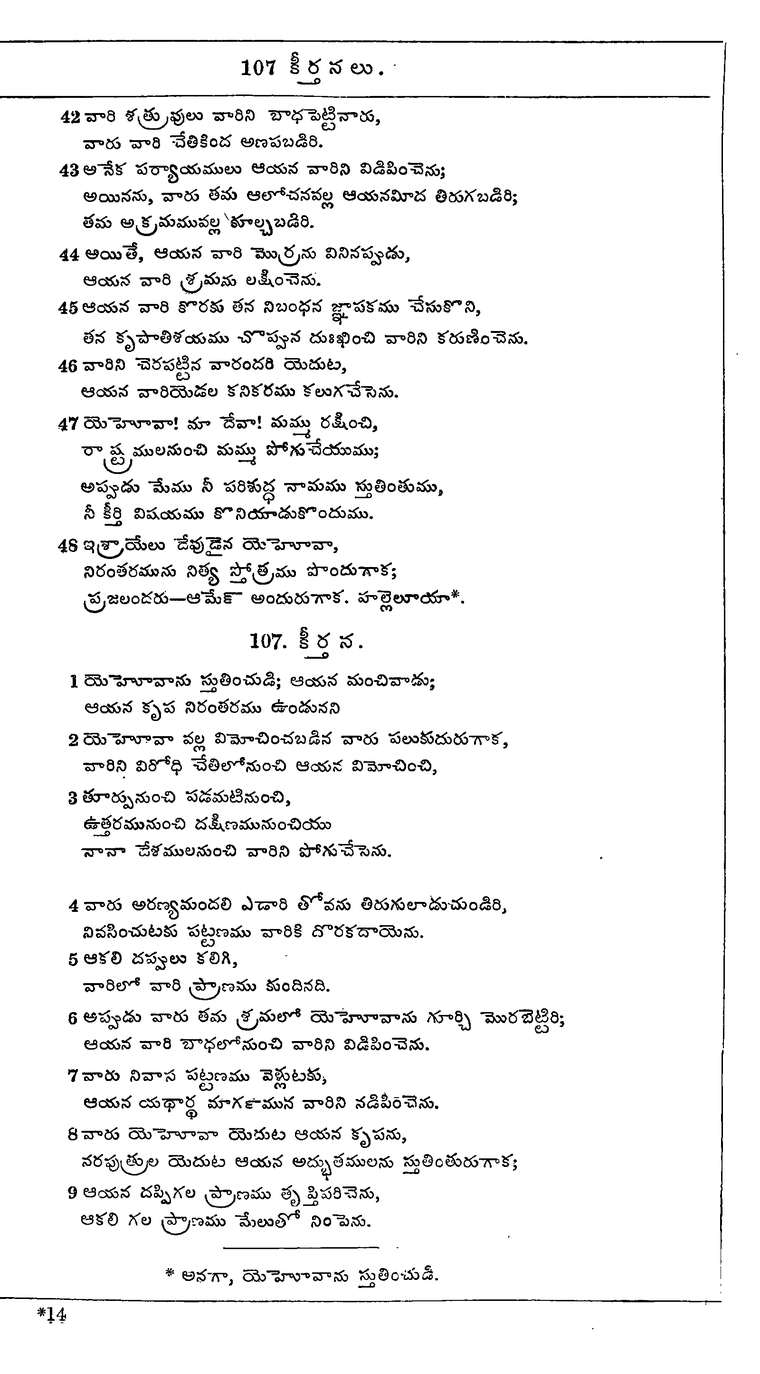 107 కీర్తనలు.
42 వారి శత్రువులు వారిని బాధపెట్టినారు,
వారు వారి చేతికింద అణపబడిరి.
43 అనేక పర్యాయములు ఆయన వారిని విడిపించెను;
అయినను, వారు తమ ఆలోచనవల్ల ఆయనమీద తిరుగబడిరి;
తమ అక్రమమువల్ల కూల్చబడిరి.
44 అయితే, ఆయన వారి మొర్రను వినినప్పుడు,
ఆయన వారి శ్రమను లక్షించెను.
45 ఆయన వారి కొరకు తన నిబంధన జ్ఞాపకము చేసుకొని,
తన కృపాతిశయము చొప్పున దుఃఖించి వారిని కరుణించెను.
46 వారిని చెరపట్టిన వారందరి యెదుట,
ఆయన వారియెడల కనికరము కలుగచేసెను.
47 యెహోవా! మా దేవా! మమ్ము రక్షించి,
రాష్ట్రములనుంచి మమ్ము పోగుచేయుము;
అప్పుడు మేము నీ పరిశుద్ధ నామము స్తుతింతుము,
నీ కీర్తి విషయము కొనియాడుకొందుము.
48 ఇశ్రాయేలు దేవుడైన యెహోవా,
నిరంతరమును నిత్య స్తోత్రము పొందుగాక;
ప్రజలందరు—ఆమేన్ అందురుగాక. హల్లెలూయా*.
107. కీర్తన.
1 యెహోవాను స్తుతించుడి; ఆయన మంచివాడు;
ఆయన కృప నిరంతరము ఉండునని
2 యెహోవా వల్ల విమోచించబడిన వారు పలుకుదురుగాక,
వారిని విరోధి చేతిలోనుంచి ఆయన విమోచించి,
3 తూర్పునుంచి పడమటినుంచి,
ఉత్తరమునుంచి దక్షిణమునుంచియు
నానా దేశములనుంచి వారిని పోగుచేసెను.
4 వారు అరణ్యమందలి ఎడారి తోవను తిరుగులాడుచుండిరి,
నివసించుటకు పట్టణము వారికి దొరకదాయెను.
5 ఆకలి దప్పులు కలిగి,
వారిలో వారి ప్రాణము కుందినది.
6 అప్పుడు వారు తమ శ్రమలో యెహోవాను గూర్చి మొరబెట్టిరి;
ఆయన వారి బాధలోనుంచి వారిని విడిపించెను.
7 వారు నివాస పట్టణము వెళ్లుటకు,
ఆయన యథార్థ మార్గమున వారిని నడిపించెను.
8 వారు యెహోవా యెదుట ఆయన కృపను,
నరపుత్రుల యెదుట ఆయన అద్భుతములను స్తుతింతురుగాక;
9 ఆయన దప్పిగల ప్రాణము తృప్తిపరిచెను,
ఆకలి గల ప్రాణము మేలుతో నింపెను.
* అనగా, యెహోవాను స్తుతించుడి.
*14